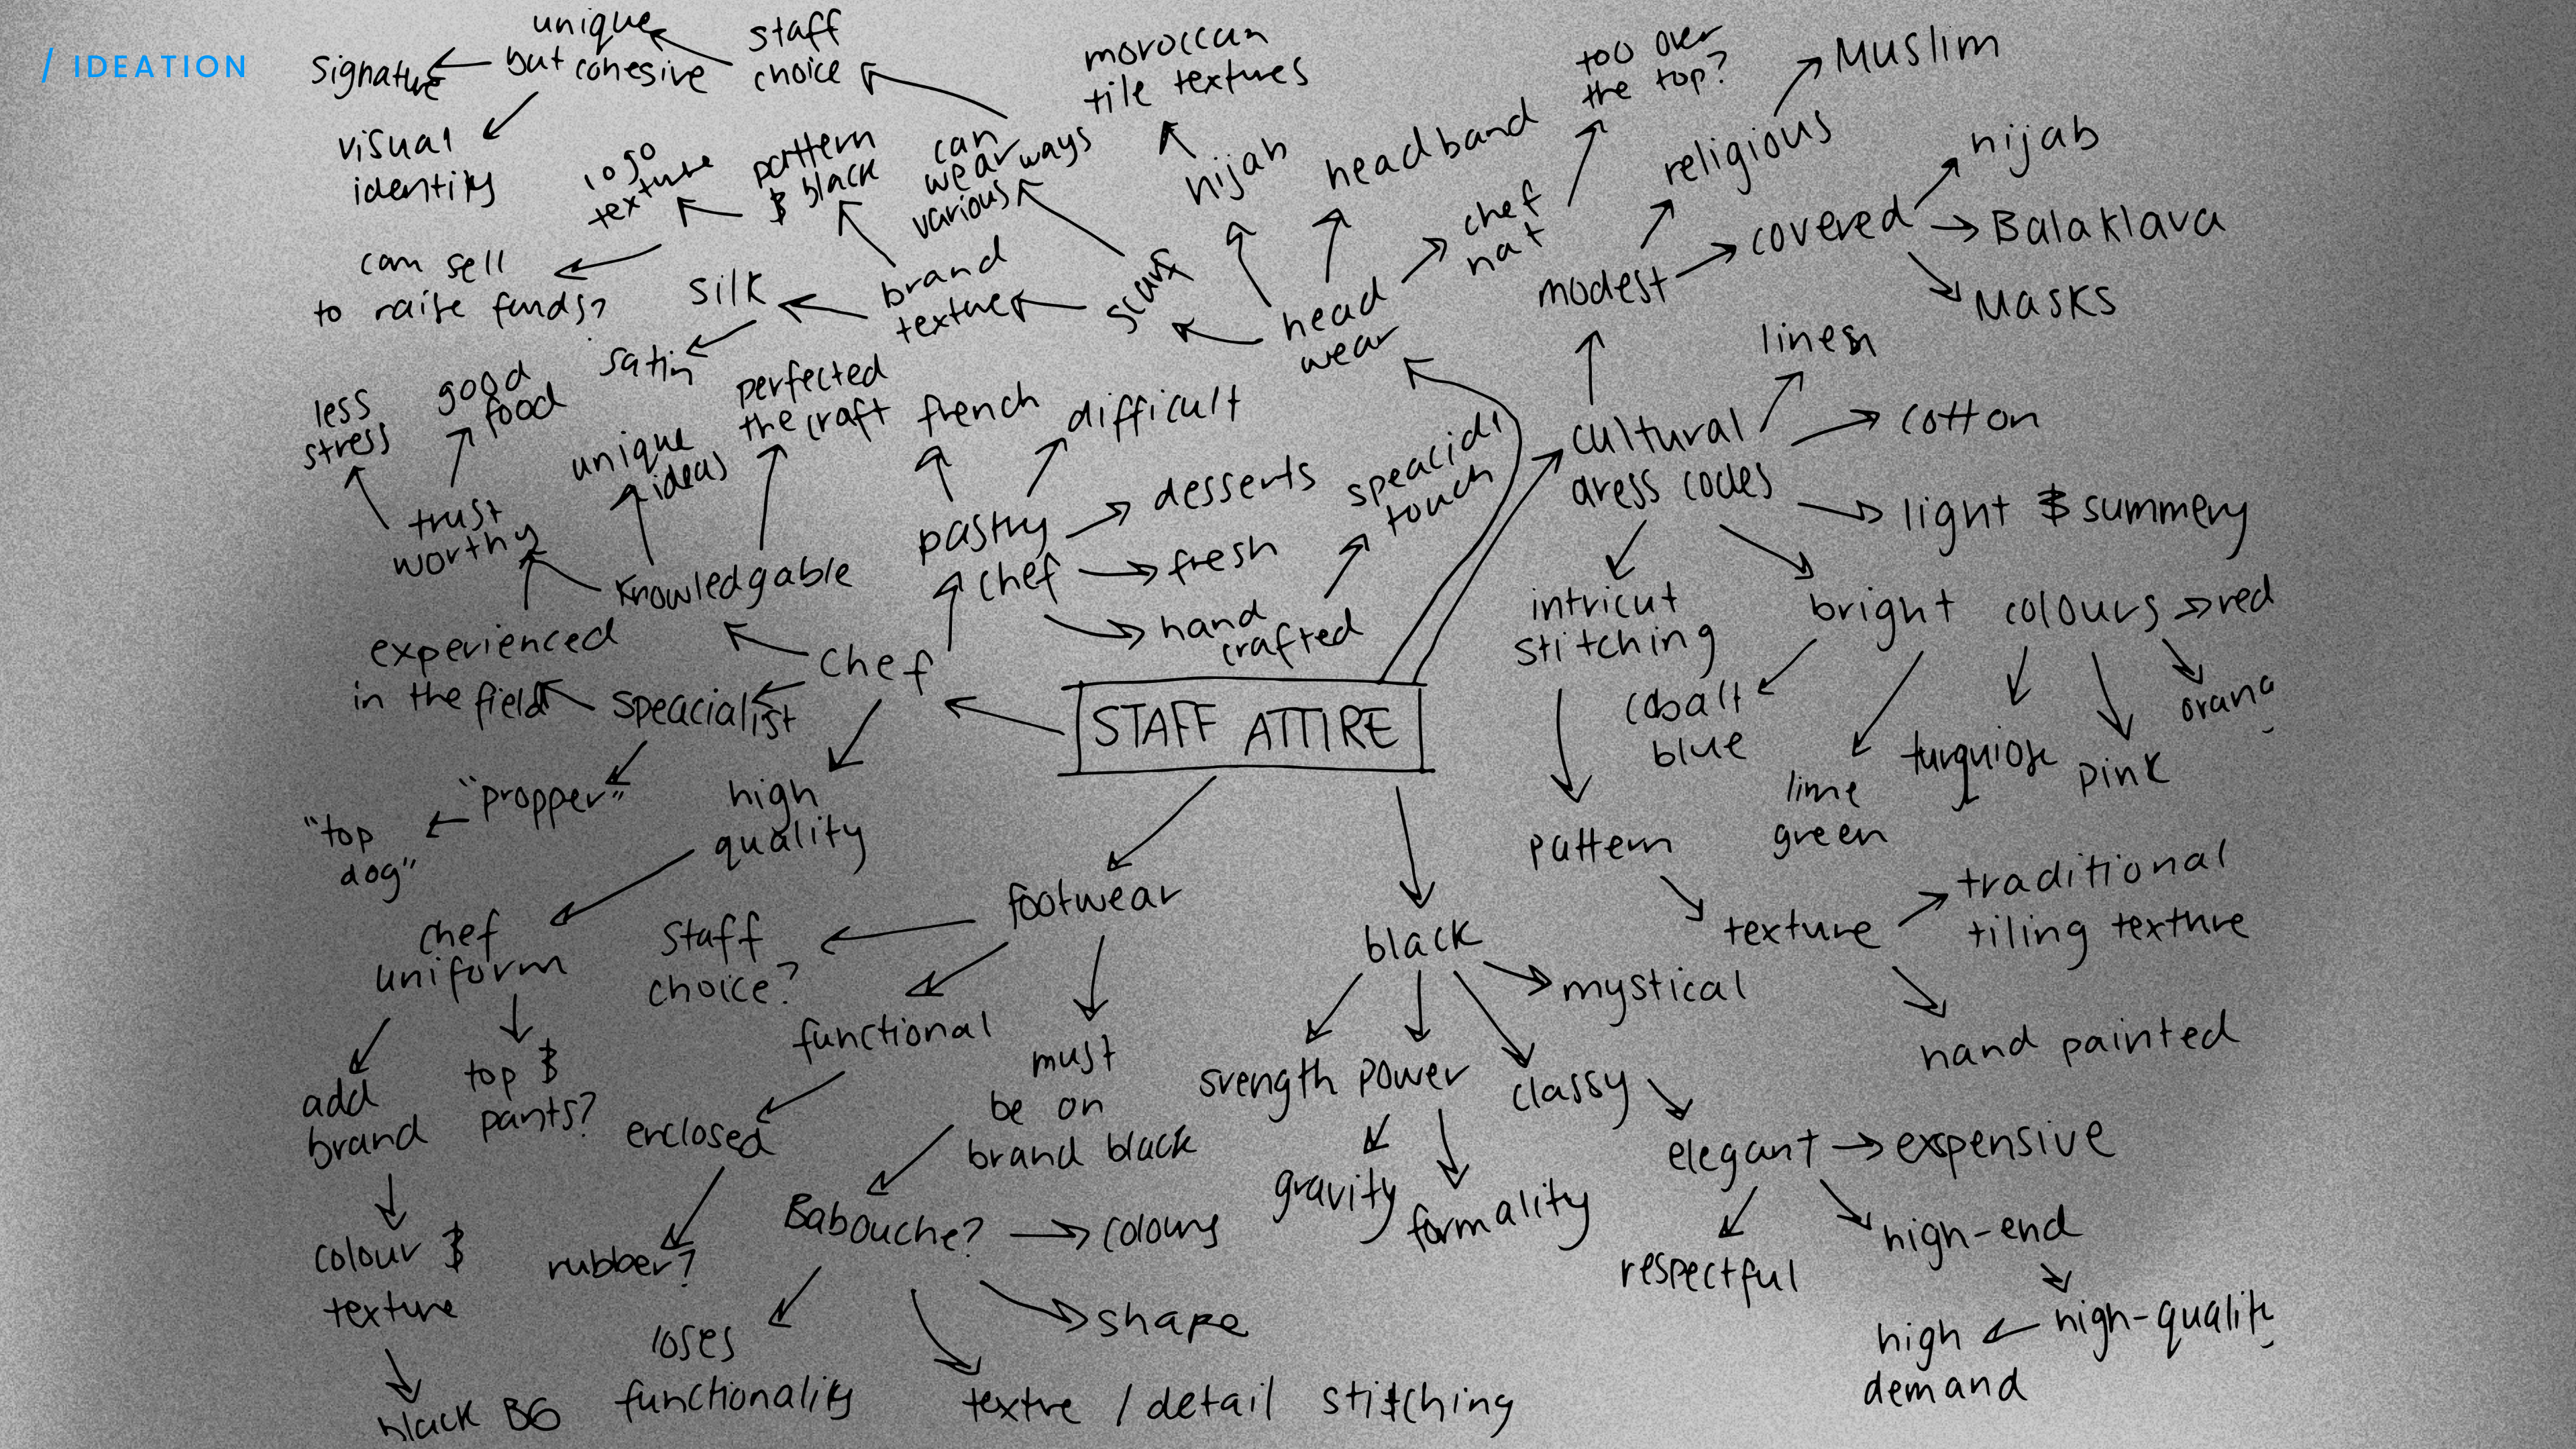 / IDEATION
signature
unique
but cohesive
staff
choice
visual
identity
logo
texture
pattern
& black
can
wear ways
various
moroccan
tile textures
hijab
headband
too over
the top?
chef
hat
religious
Muslim
modest
covered
hijab
Balaklava
Masks
can sell
to raise funds?
silk
satin
brand
texture
scarf
head
wear
linen
cotton
cultural
dress codes
light & summery
less
stress
good
food
unique
ideas
perfected
the craft
french
difficult
desserts
speacial
touch
trust
worthy
knowledgable
pastry
chef
fresh
hand
crafted
intricut
stitching
bright colours
red
orang
cobalt
blue
lime
green
turquiose
pink
experienced
in the field
speacialist
chef
STAFF ATTIRE
"propper"
"top
dog"
high
quality
pattern
texture
traditional
tiling texture
hand painted
chef
uniform
staff
choice?
footwear
black
mystical
functional
must
be on
brand black
srength
power
classy
add
brand
top &
pants?
enclosed
gravity
formality
elegant
expensive
respectful
high-end
high-qualit
high
demand
colour &
texture
rubber?
Babouche?
colours
shape
loses
functionality
textre / detail stitching
black BG